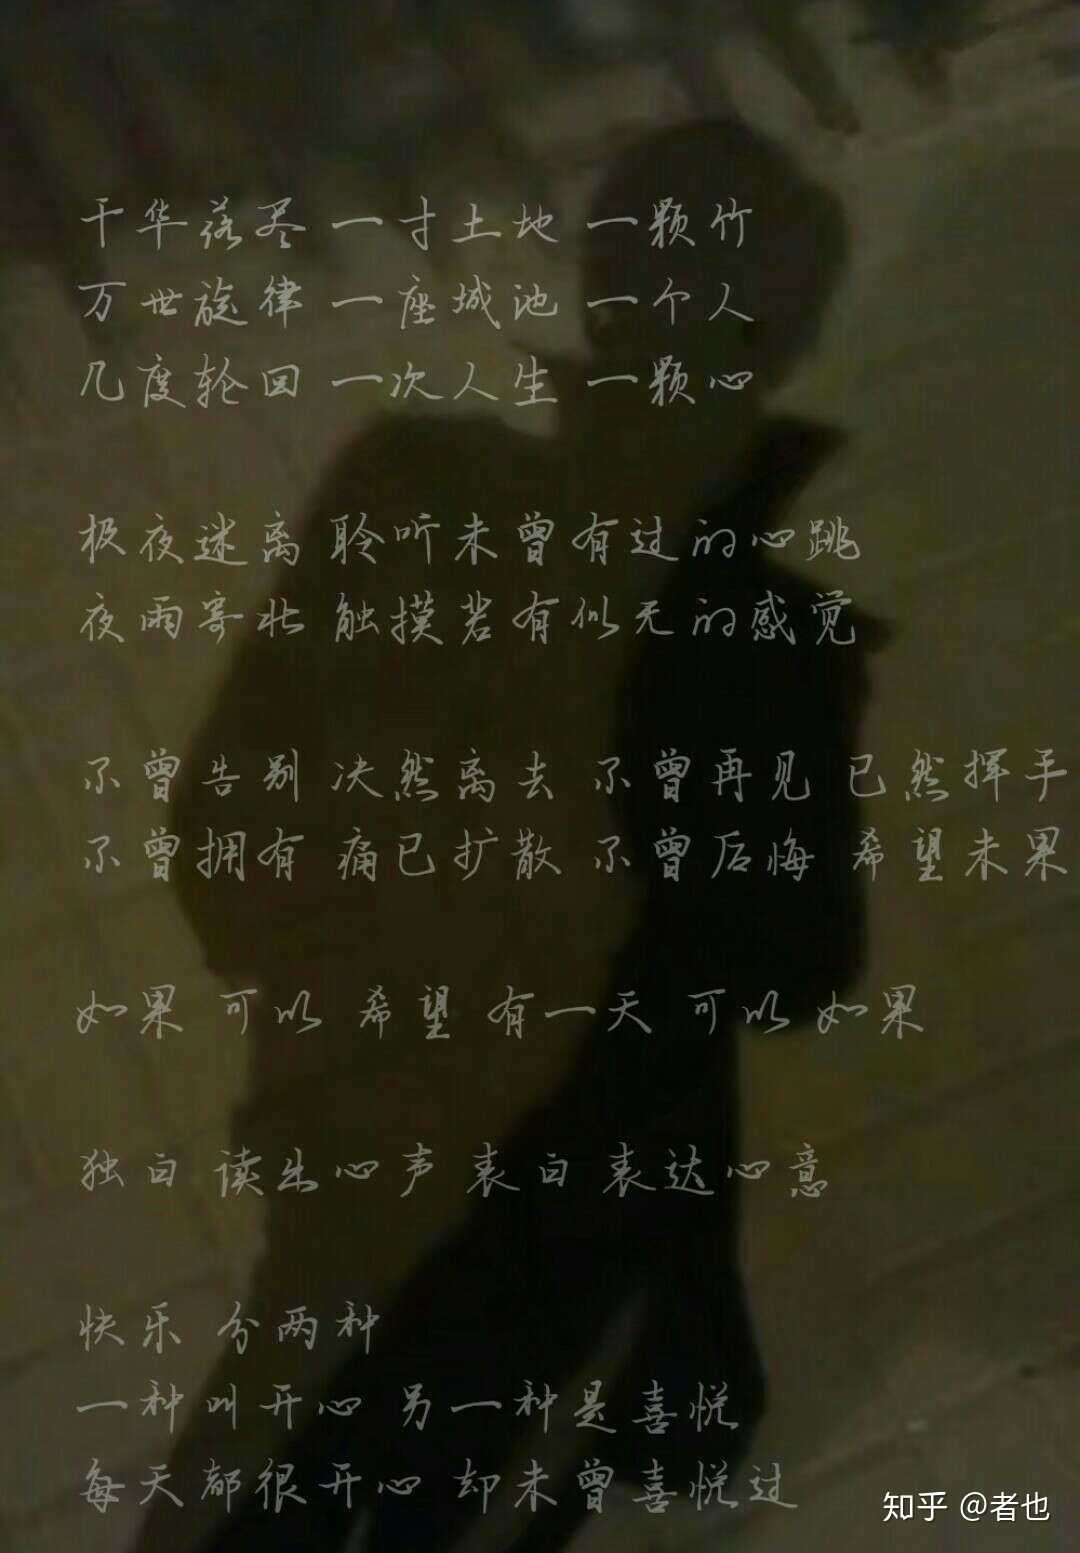 千华落尽 一寸土地 一颗竹
万世旋律 一座城池 一个人
几度轮回 一次人生 一颗心
极夜迷离 聆听未曾有过的心跳
夜雨寄北 触摸若有似无的感觉
不曾告别 决然离去 不曾再见 已然挥手
不曾拥有 痛已扩散 不曾后悔 希望未果
如果 可以 希望 有一天 可以 如果
独白 读出心声 表白 表达心意
快乐 分两种
一种叫开心 另一种是喜悦
每天都很开心 却未曾喜悦过
知乎 @者也